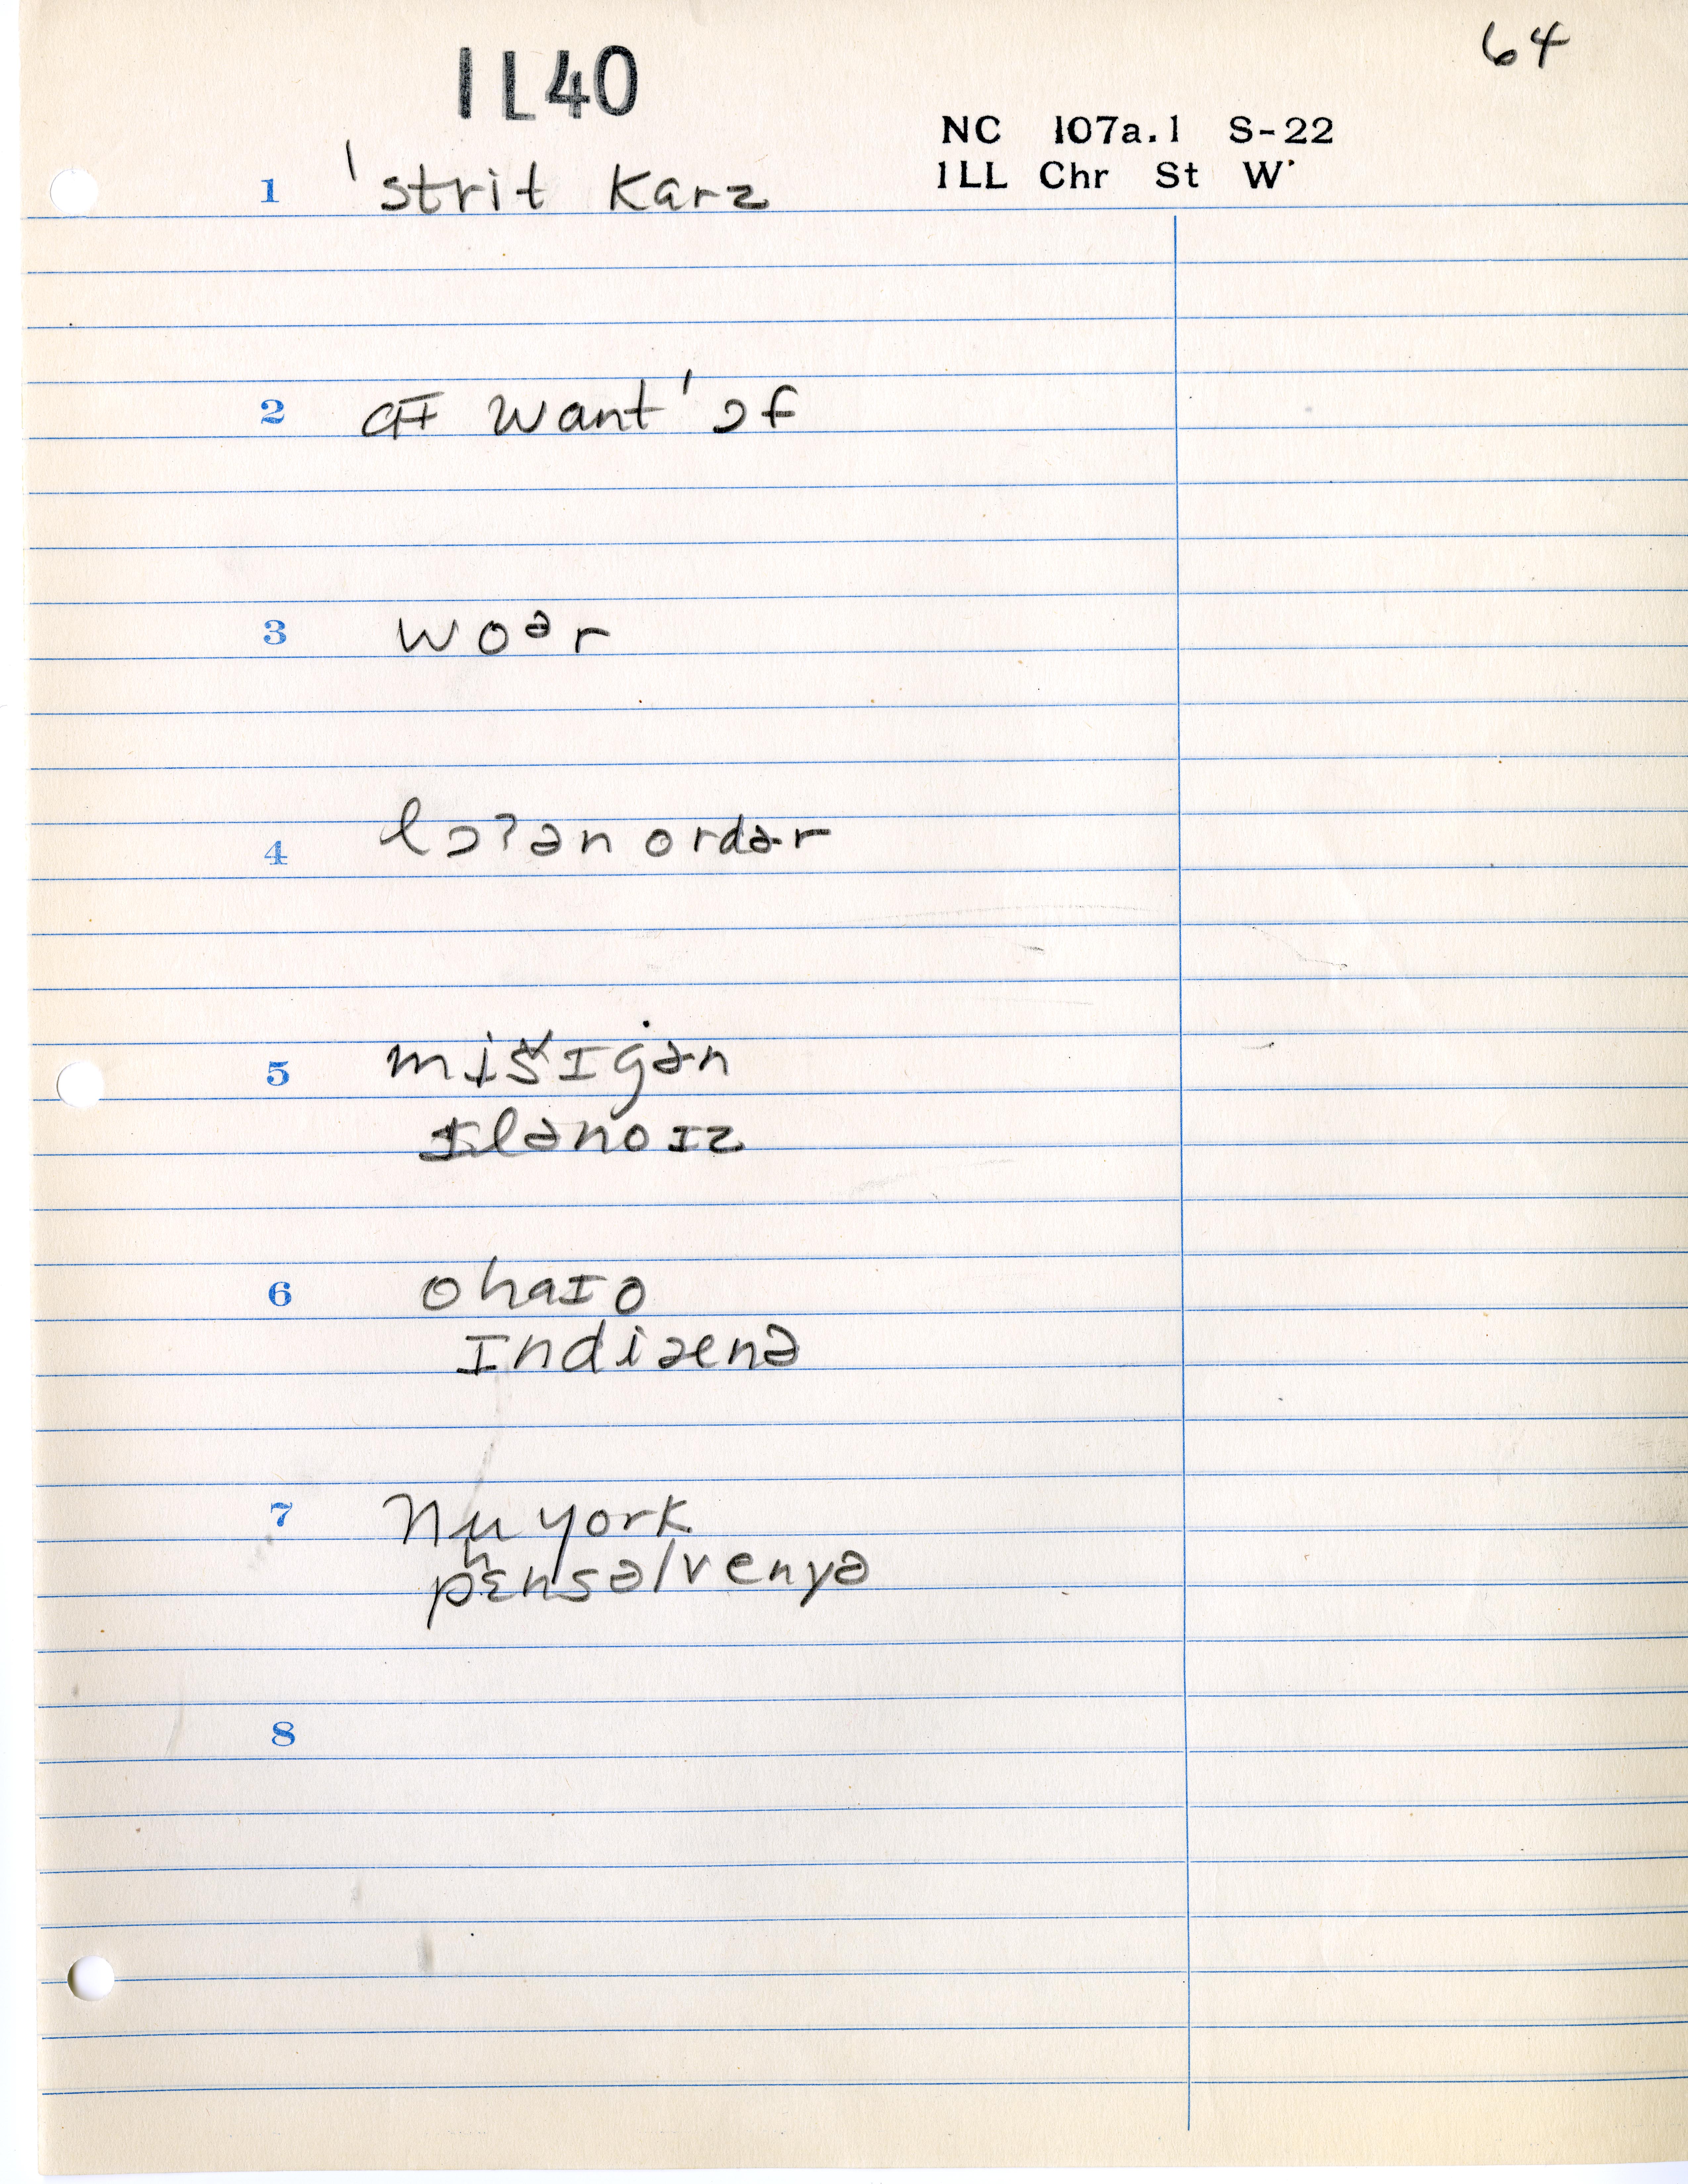 64
IL40
NC 107a.1 S-22
ILL Chr St W
1 ˈstrit karz
2 aɪ want ˈɔf
3 woᵊr
4 lɔʔən ordər
5 mɪšɪgən
ɪlənoɪz
6 ohaɪo
ɪndiænə
7 nu york
pɛnsəlvenyə
8